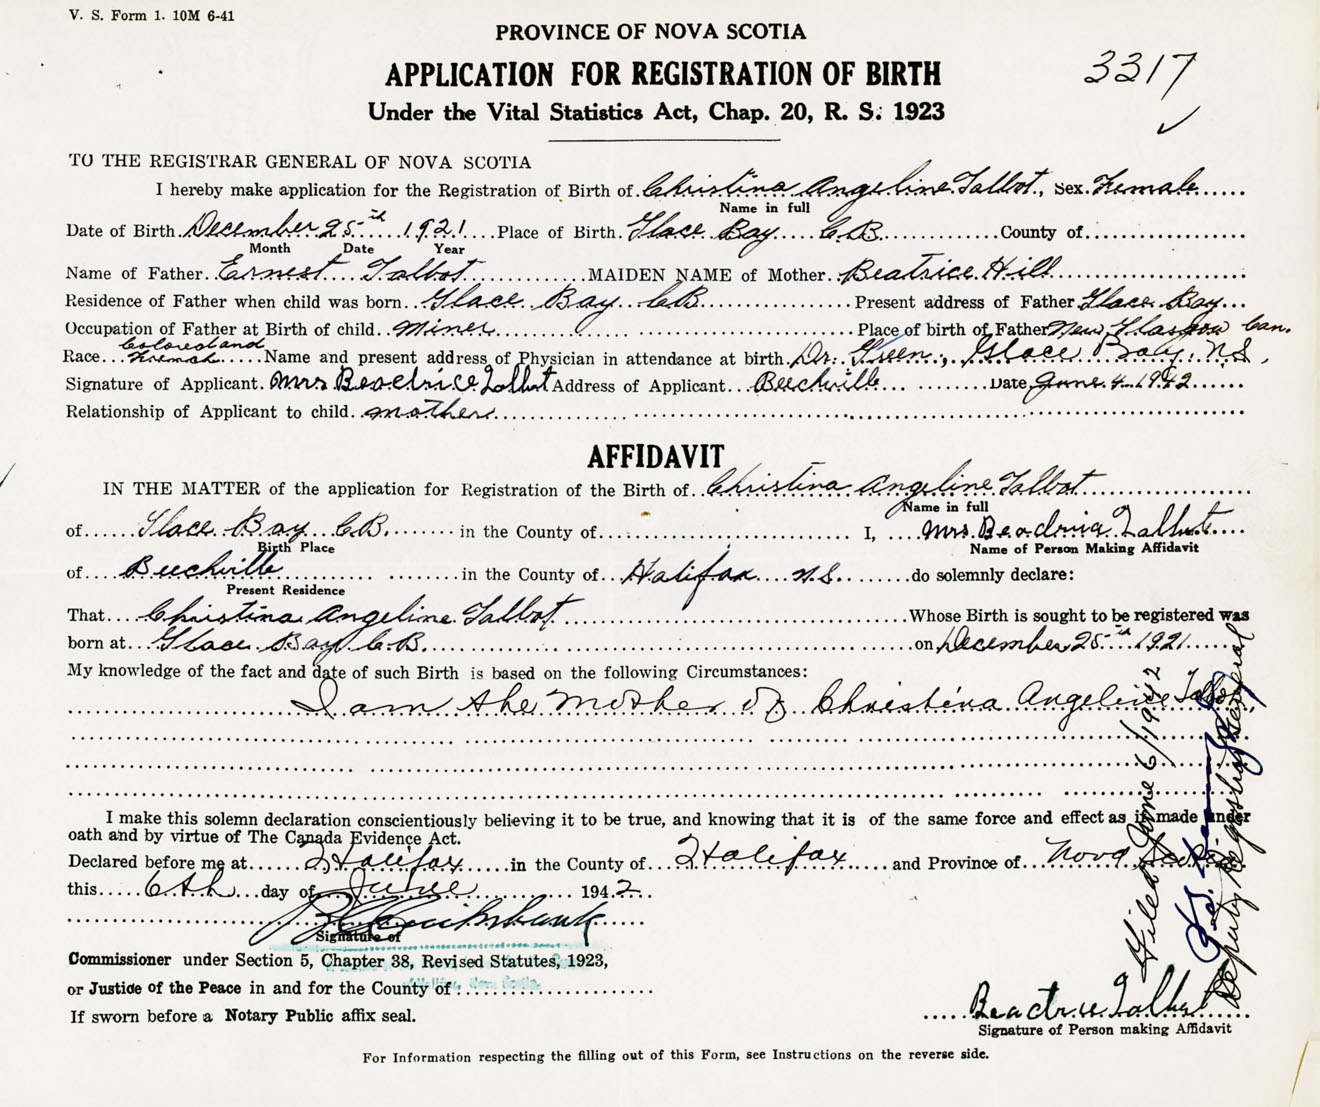 V. S. Form 1. 10M 6-41
PROVINCE OF NOVA SCOTIA
APPLICATION FOR REGISTRATION OF BIRTH
3317
Under the Vital Statistics Act, Chap. 20, R. S. 1923
TO THE REGISTRAR GENERAL OF NOVA SCOTIA
I hereby make application for the Registration of Birth of Christina Angeline Talbot, Sex Female
Name in full
Date of Birth December 25th 1921 Place of Birth Glace Bay C.B. County of
Month Date Year
Name of Father Ernest Talbot MAIDEN NAME of Mother Beatrice Hill
Residence of Father when child was born Glace Bay CB Present address of Father Glace Bay
Occupation of Father at Birth of child miner Place of birth of Father New Glasgow Can.
Colored and
Race Name and present address of Physician in attendance at birth Dr. Green, Glace Bay, N.S.
Signature of Applicant Mrs Beatrice Talbot Address of Applicant Beechville Date June 4 1942
Relationship of Applicant to child mother
AFFIDAVIT
IN THE MATTER of the application for Registration of the Birth of Christina Angeline Talbot
Name in full
of Glace Bay C.B. in the County of I, Mrs Beatrice Talbot
Birth Place Name of Person Making Affidavit
of Beechville in the County of Halifax N.S. do solemnly declare:
Present Residence
That Christina Angeline Talbot Whose Birth is sought to be registered was
born at Glace Bay C.B. on December 25th 1921
My knowledge of the fact and date of such Birth is based on the following Circumstances:
I am the Mother of Christina Angeline Talbot
I make this solemn declaration conscientiously believing it to be true, and knowing that it is of the same force and effect as if made under
oath and by virtue of The Canada Evidence Act.
Declared before me at Halifax in the County of Halifax and Province of Nova Scotia
this 6th day of June 1942
Signature of
Commissioner under Section 5, Chapter 38, Revised Statutes, 1923,
or Justice of the Peace in and for the County of
If sworn before a Notary Public affix seal.
Beatrice Talbot
Signature of Person making Affidavit
For Information respecting the filling out of this Form, see Instructions on the reverse side.
Filed June 6/1942
Deputy Registrar General